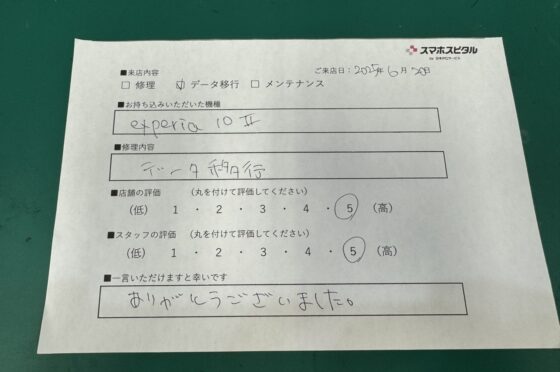 スマホスピタル
■来店内容
ご来店日：2025年6月30日
□ 修理 ☑ データ移行 □ メンテナンス
■お持ち込みいただいた機種
experia 10 Ⅱ
■修理内容
データ移行
■店舗の評価 （丸を付けて評価してください）
（低） 1 ・ 2 ・ 3 ・ 4 ・ 5 （高）
■スタッフの評価 （丸を付けて評価してください）
（低） 1 ・ 2 ・ 3 ・ 4 ・ 5 （高）
■一言いただけますと幸いです
ありがとうございました。